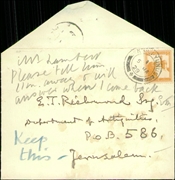 Mr Lambert
Please tell him
I'm away & will
answer when I come back
E.T. Richmond Esq.
Department of Antiquities
P.O.B. 586,
Keep
this —
Jerusalem.